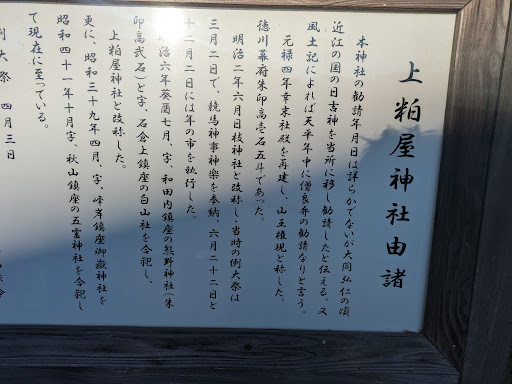 上粕屋神社由諸
本神社の勧請年月日は詳らかでないが大同弘仁の頃
近江の国の日吉神を当所に移し勧請したと伝える。又
風土記によれば天平年中に僧良弁の勧請なりと言う。
元禄四年幸末社殿を再建し、山王権現と称した。
徳川幕府朱印高壱石五斗であった。
明治二年六月日枝神社と改称し、当時の例大祭は
三月二日で、競馬神事神楽を奉納、六月二十二日と
十二月二日には年の市を執行した。
明治六年葵酉七月、字、和田内鎮座の熊野神社(朱
印高弐石)と字、石倉上鎮座の白山社を合祀し、
上粕屋神社と改称した。
更に、昭和三十九年四月、字、峰岸鎮座御嶽神社を
昭和四十一年十月字、秋山鎮座の五霊神社を合祀し
て現在に至っている。
例大祭 四月三日